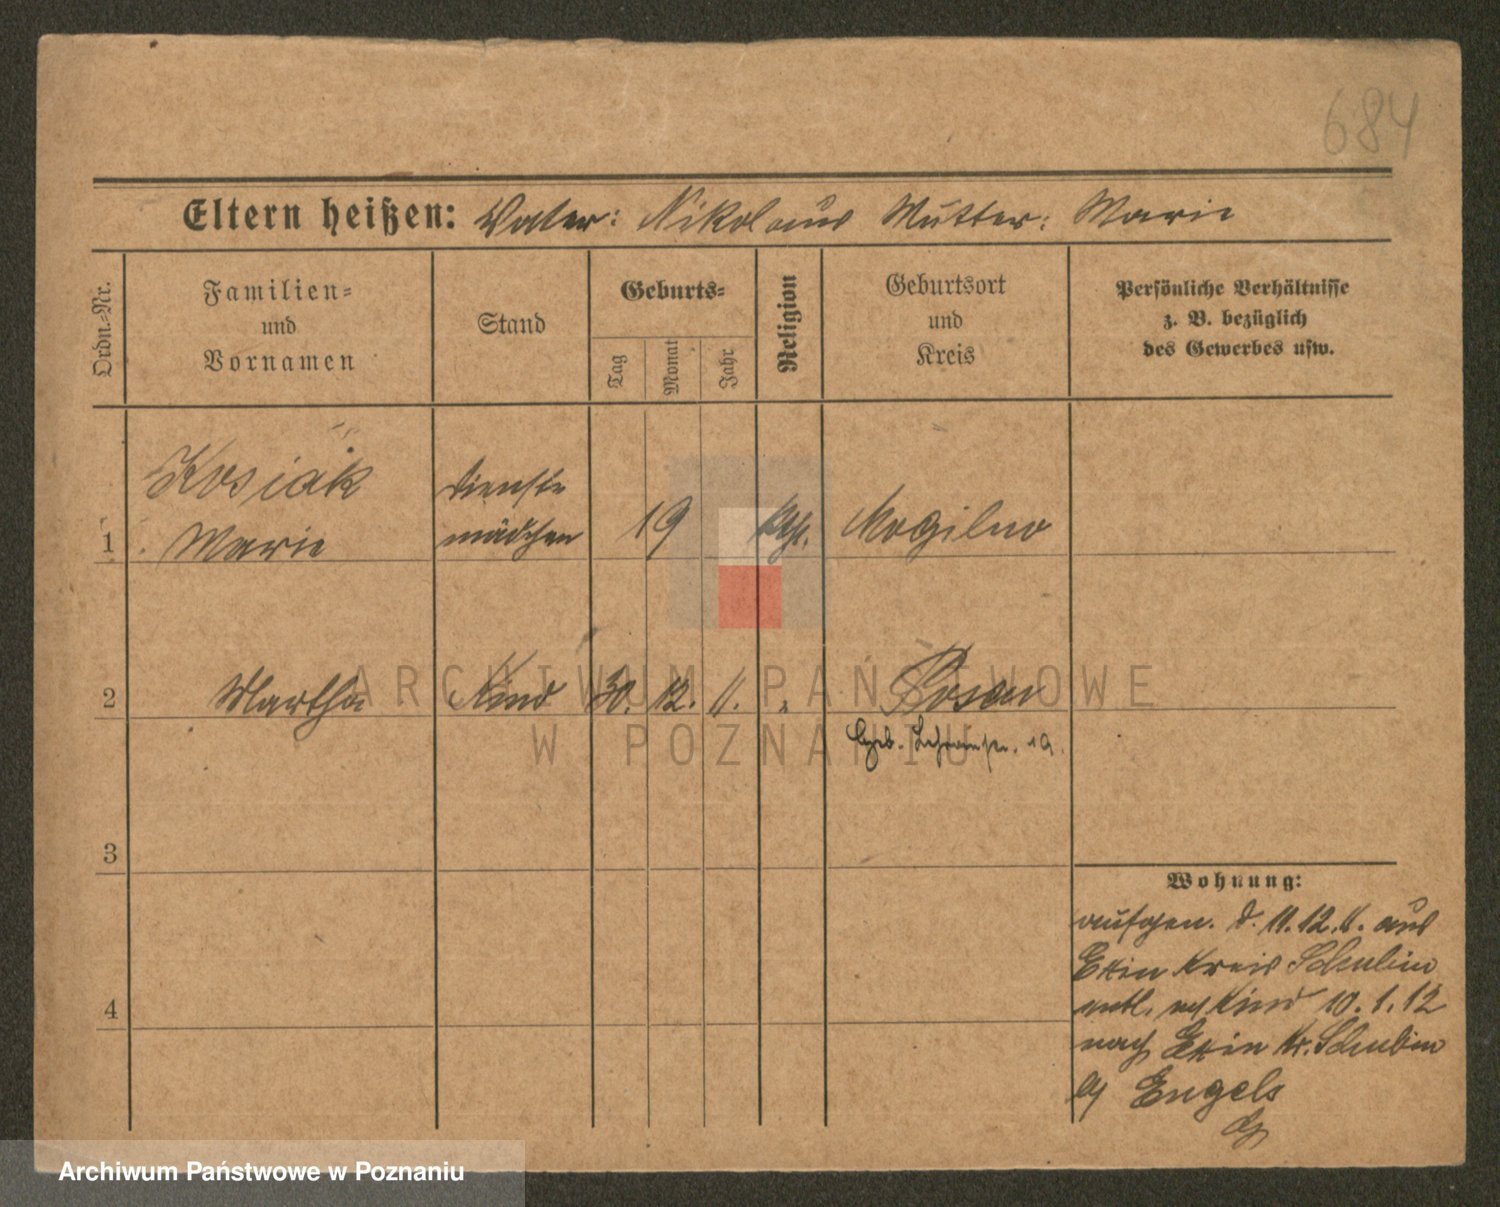 684
Eltern heißen: Vater: Nikolaus Mutter: Marie
Ordn.-Nr.
Familien-
und
Vornamen
Stand
Geburts-
Tag
Monat
Jahr
Religion
Geburtsort
und
Kreis
Persönliche Verhältnisse
z. B. bezüglich
des Gewerbes usw.
Kosiak
Dienst-
1 Marie mädchen 19 kth. Mogilno
2 Martha Kind 30. 12. 11. " Posen
Geb. 19.
3
Wohnung:
aufgen. d. 11.12.11. aus
Exin Kreis Schubin
entl. Kind 10.1.12
4
nach Exin Kr. Schubin
Engels
ARCHIWUM PAŃSTWOWE
W POZNANIU
Archiwum Państwowe w Poznaniu